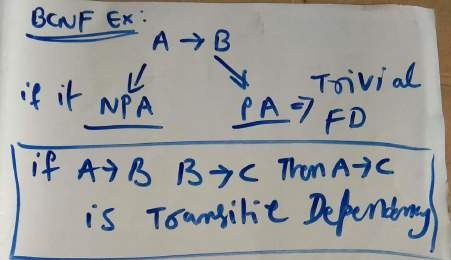 BCNF Ex:
A → B
if it NPA PA ⇒ Trivial
FD
if A→B B→C Then A→C
is Transitie Dependency